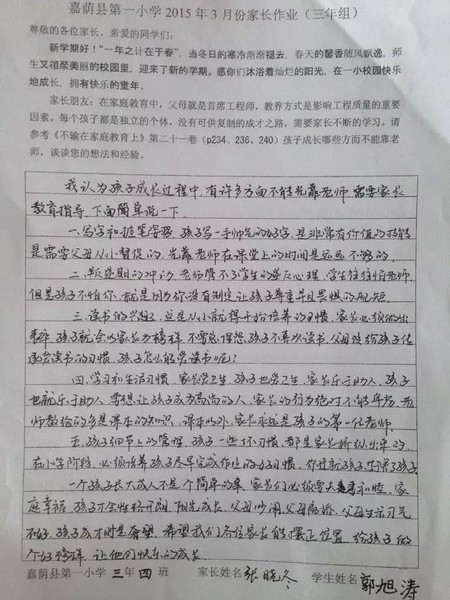 嘉荫县第一小学2015年3月份家长作业（三年组）
尊敬的各位家长、亲爱的同学们：
新学期好！“一年之计在于春”，当冬日的寒冷渐渐褪去，春天的馨香随风飘逸，师
生又相聚美丽的校园里，迎来了新的学期。愿你们沐浴着灿烂的阳光，在一小校园快乐
地成长，拥有快乐的童年。
家长朋友：在家庭教育中，父母就是首席工程师，教养方式是影响工程质量的重要
因素。每个孩子都是独立的个体，没有可供复制的成才之路，需要家长不断的学习。请
参考《不输在家庭教育上》第二十一卷（p234、236、240）孩子成长哪些方面不能靠老
师，谈谈您的想法和经验。
我认为孩子成长过程中，有许多方面不能光靠老师，需要家长
教育指导，下面简单说一下。
一、写字和握笔姿势，孩子写一手漂亮的好字，是非常有价值的技能
是需要父母从小督促的，光靠老师在课堂上的时间是远远不够的。
二、叛逆期的冲动，老师管不了学生的逆反心理，学生往往怕老师，
但是孩子不怕你，就是因为你没有制定让孩子尊重且畏惧的规矩。
三、读书的兴趣，这是从小就得开始培养的习惯，家长必须做出
表率，孩子就会以家长为榜样，不要总埋怨孩子不喜欢读书，父母没给孩子传
递爱读书的习惯，孩子怎么能爱读书呢？
四、学习和生活习惯，家长爱卫生，孩子也爱卫生，家长乐于助人，孩子
也就乐于助人，要想让孩子成为高尚的人，家长的行为绝对不能卑劣。老
师教给的多是课本的知识，课本以外，家长永远是孩子的第一任老师。
五、孩子细节上的管理，孩子一些坏习惯，都是家长娇纵出来的，
在小学阶段，必须培养孩子尽早完成作业的好习惯，
一个孩子长大成人不是个简单的事，家长们必须要夫妻和睦，家
庭幸福，孩子才会性格开朗，阳光成长，父母吵闹，父母离婚，父母生活习气
不好，孩子成才则是奢望，希望我们各位家长能摆正位置，给孩子做
个好榜样，让他们快乐的成长。
嘉荫县第一小学 三年 四 班 家长姓名 张晓冬 学生姓名 郭旭涛